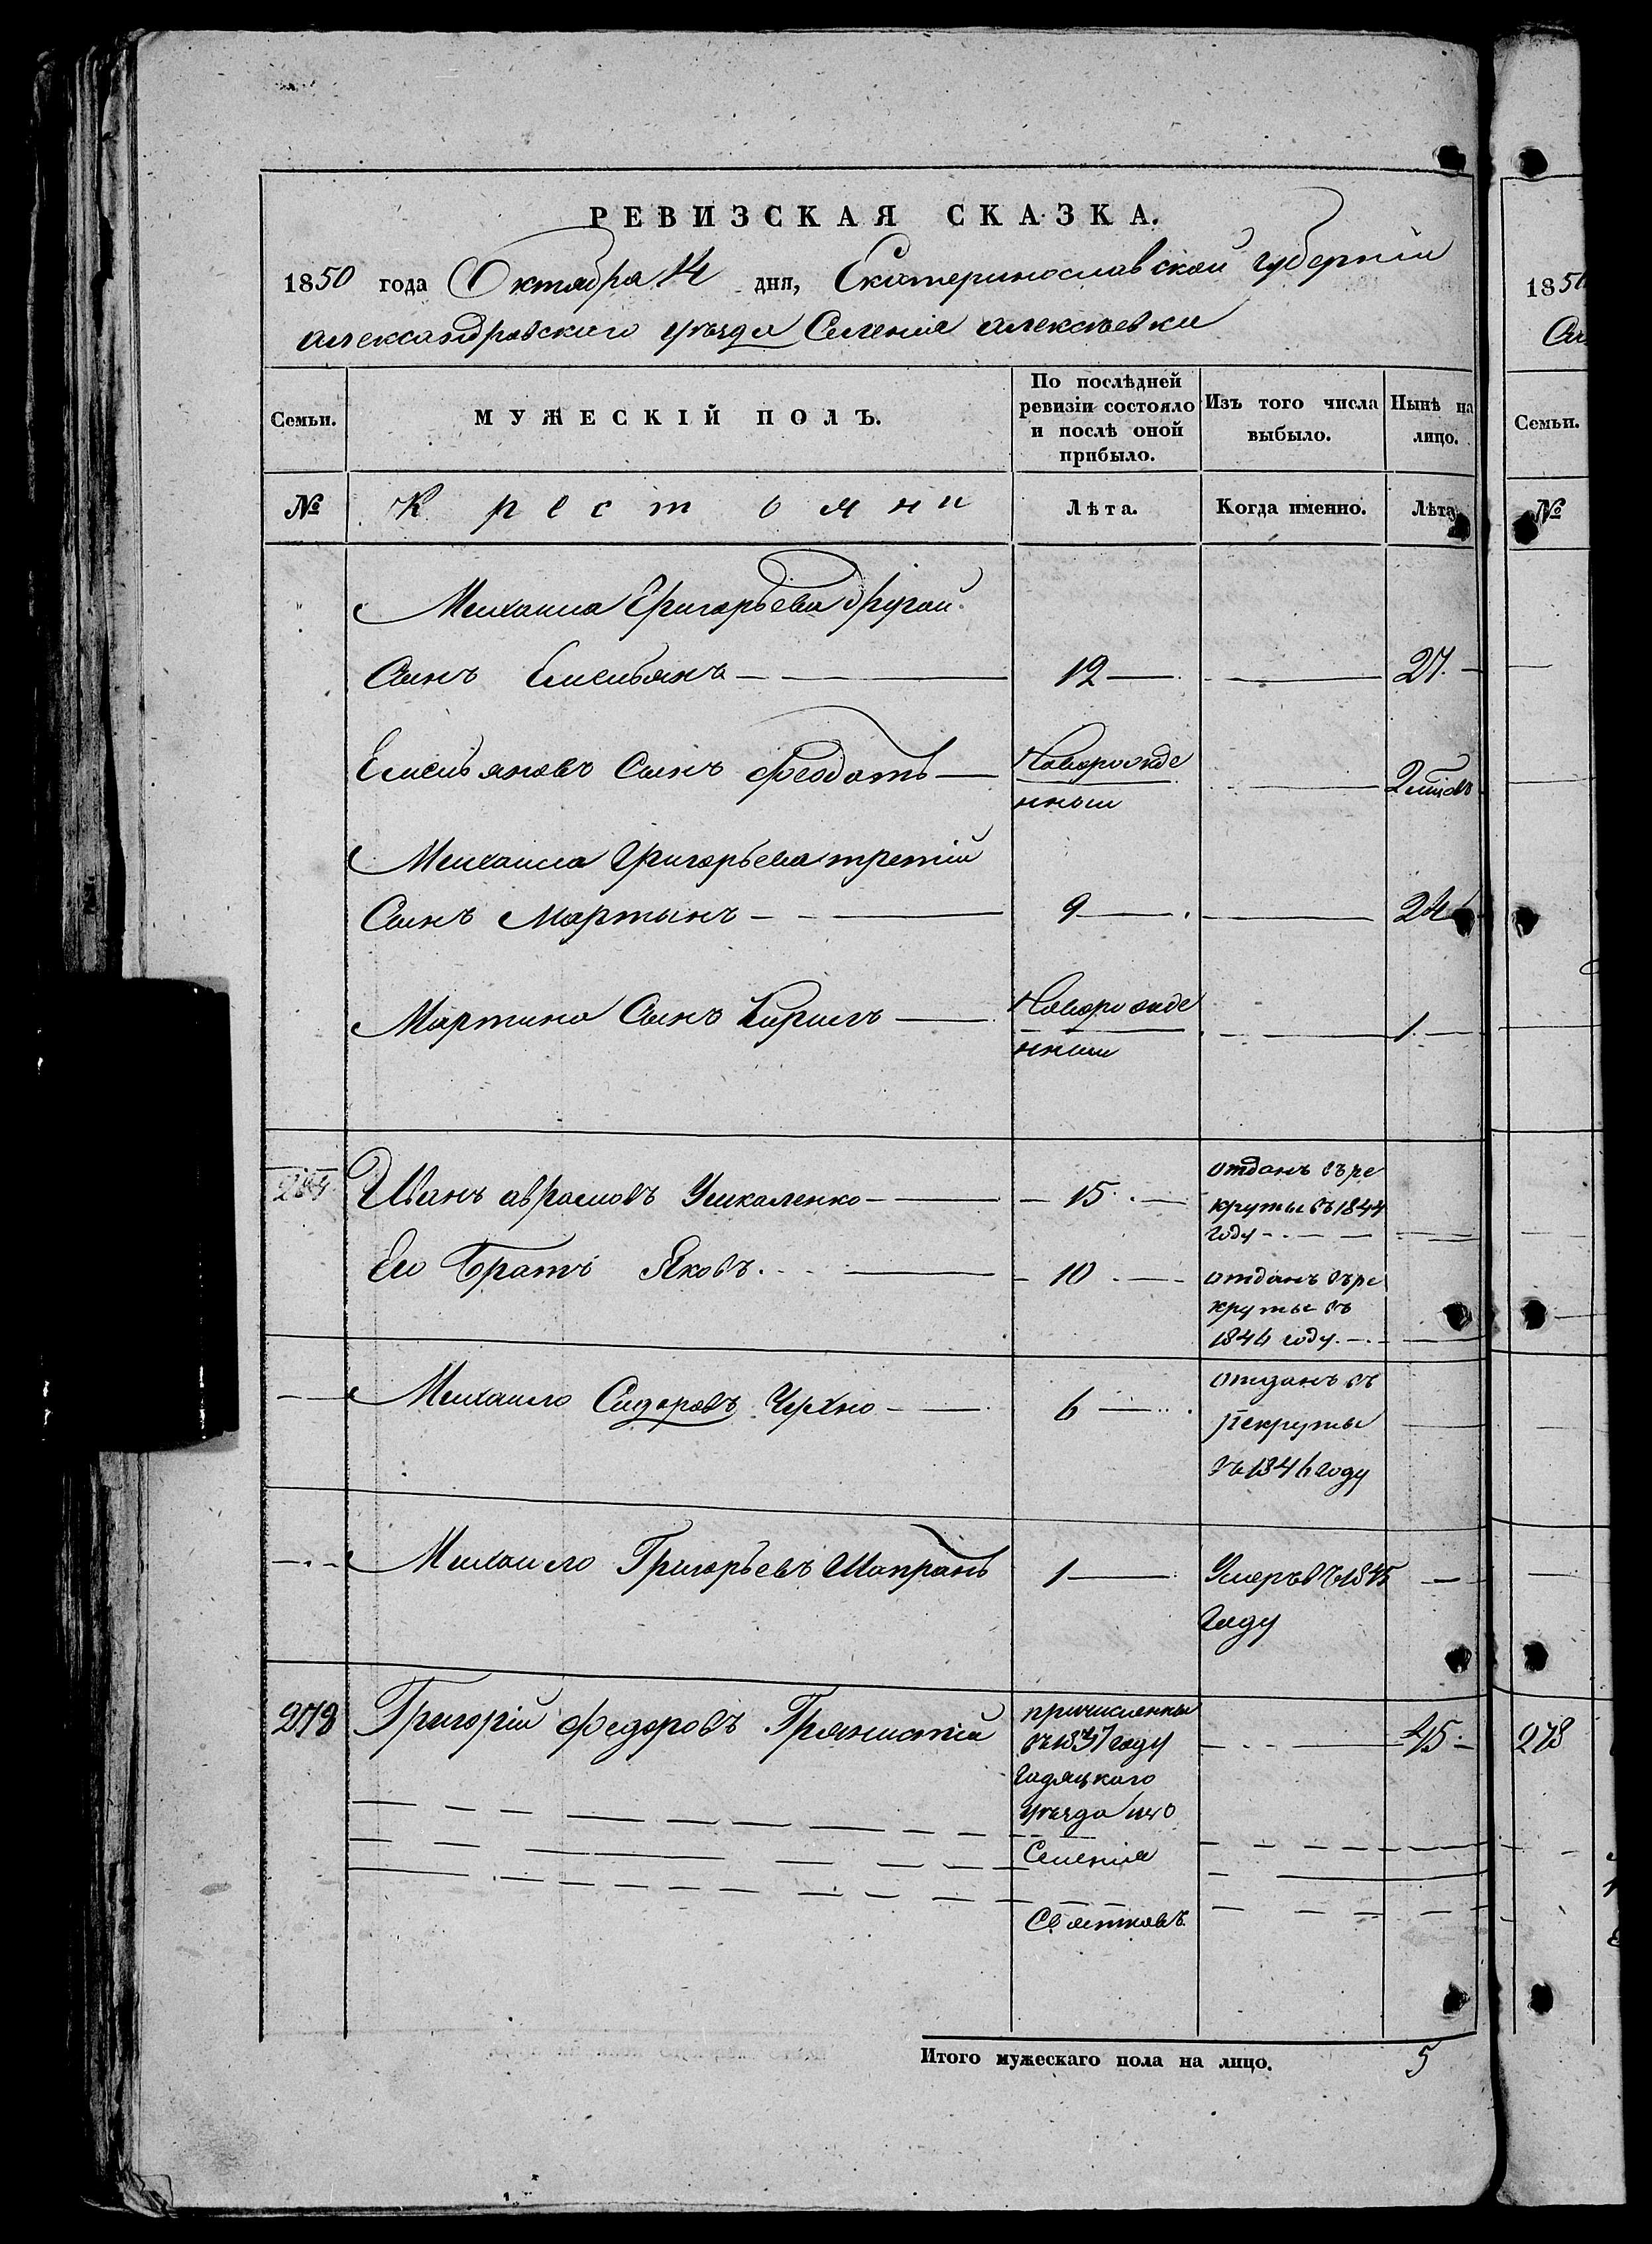 РЕВИЗСКАЯ СКАЗКА.
1850 года Октября 14 дня, Екатеринославской губерніи
Александровскаго уѣзда Селенія Алексѣевки
Семьи.
МУЖЕСКІЙ ПОЛЪ.
По послѣдней
ревизіи состояло
и послѣ оной
прибыло.
Изъ того числа
выбыло.
Нынѣ на
лицо.
№
Крестояни
Лѣта.
Когда именно.
Лѣта
Михаила Григорьева другой
Сынъ Емельянъ 12 27.
Емельяновъ Сынъ Феодотъ Новорожде
нный 2 мцовъ
Михаила Григорьева третій
Сынъ Мартынъ 9 24
Мартина Сынъ Кирилъ Новорожде
нный 1
Иванъ Аврамовъ Ушкаленко 15 отданъ въ ре
круты въ 1844
году
Его Братъ Яковъ. 10 отданъ въ ре
круты въ
1846 году.
Михаило Сидоровъ Чухно 6 отданъ въ
рекруты
въ 1846 году
Михаило Григорьевъ Шапранъ 1 Умеръ въ 1845
году
278 Григорій Федоровъ Грянистій причисленны 45
въ 1847 году
Гадяцкаго
уѣзда изъ
Селенія
Сватковъ
Итого мужескаго пола на лицо. 5
185
Семьи.
№
278